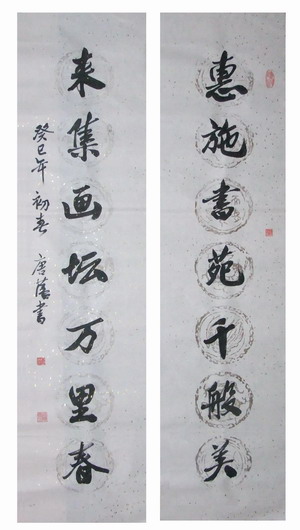 惠施书苑千般美
来集画坛万里春
癸巳年初春